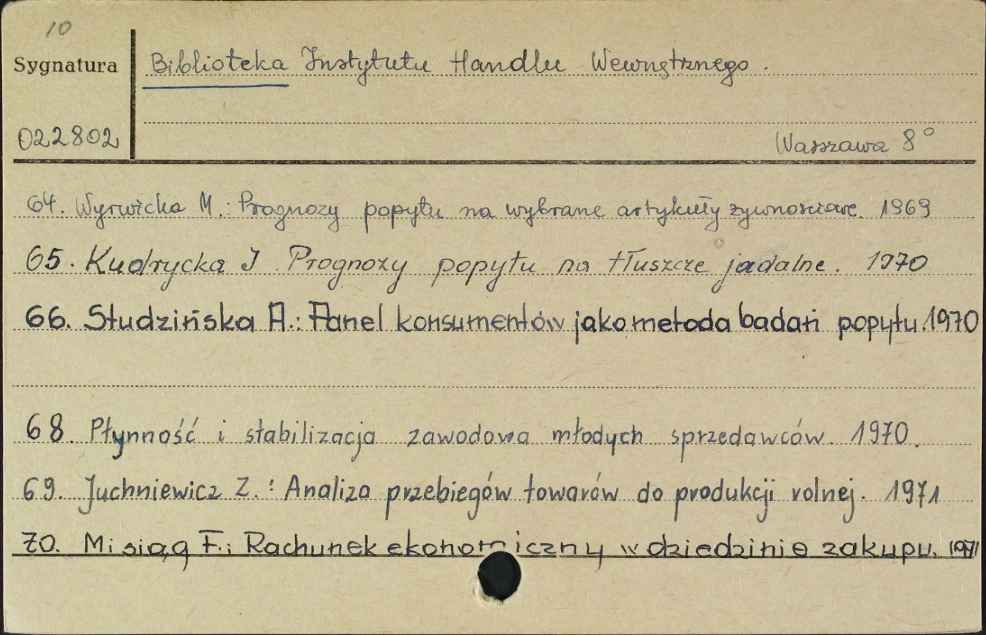 10
Sygnatura
Biblioteka Instytutu Handlu Wewnętrznego.
022802
Warszawa 8°
64. Wyrwicka M.: Prognozy popytu na wybrane artykuły żywnościowe. 1969
65. Kudrycka I Prognozy popytu na tłuszcze jadalne. 1970
66. Studzińska A.: Panel konsumentów jako metoda badań popytu. 1970
68. Płynność i stabilizacja zawodowa młodych sprzedawców. 1970.
69. Juchniewicz Z.: Analiza przebiegów towarów do produkcji rolnej. 1971
70. Misiąg F.: Rachunek ekonomiczny w dziedzinie zakupu. 1971